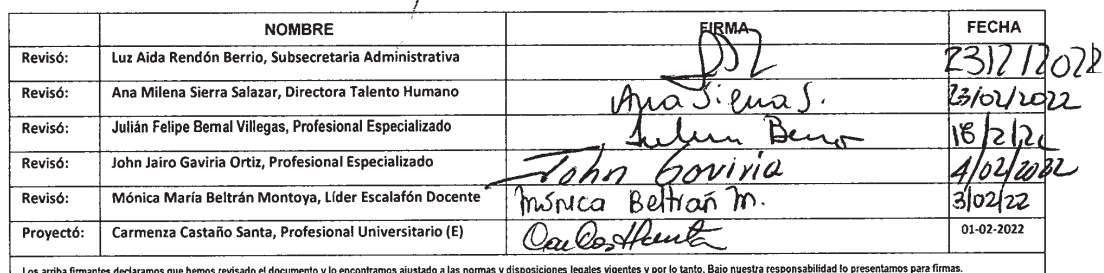 NOMBRE FIRMA FECHA
Revisó: Luz Aida Rendón Berrio, Subsecretaria Administrativa 23/2/2022
Revisó: Ana Milena Sierra Salazar, Directora Talento Humano Ana Sierra S. 23/02/2022
Revisó: Julián Felipe Bernal Villegas, Profesional Especializado 18/2/22
Revisó: John Jairo Gaviria Ortiz, Profesional Especializado John Gaviria 4/02/2022
Revisó: Mónica María Beltrán Montoya, Líder Escalafón Docente Mónica Beltrán M. 3/02/22
Proyectó: Carmenza Castaño Santa, Profesional Universitario (E) 01-02-2022
Los arriba firmantes declaramos que hemos revisado el documento y lo encontramos ajustado a las normas y disposiciones legales vigentes y por lo tanto, Bajo nuestra responsabilidad lo presentamos para firmas.